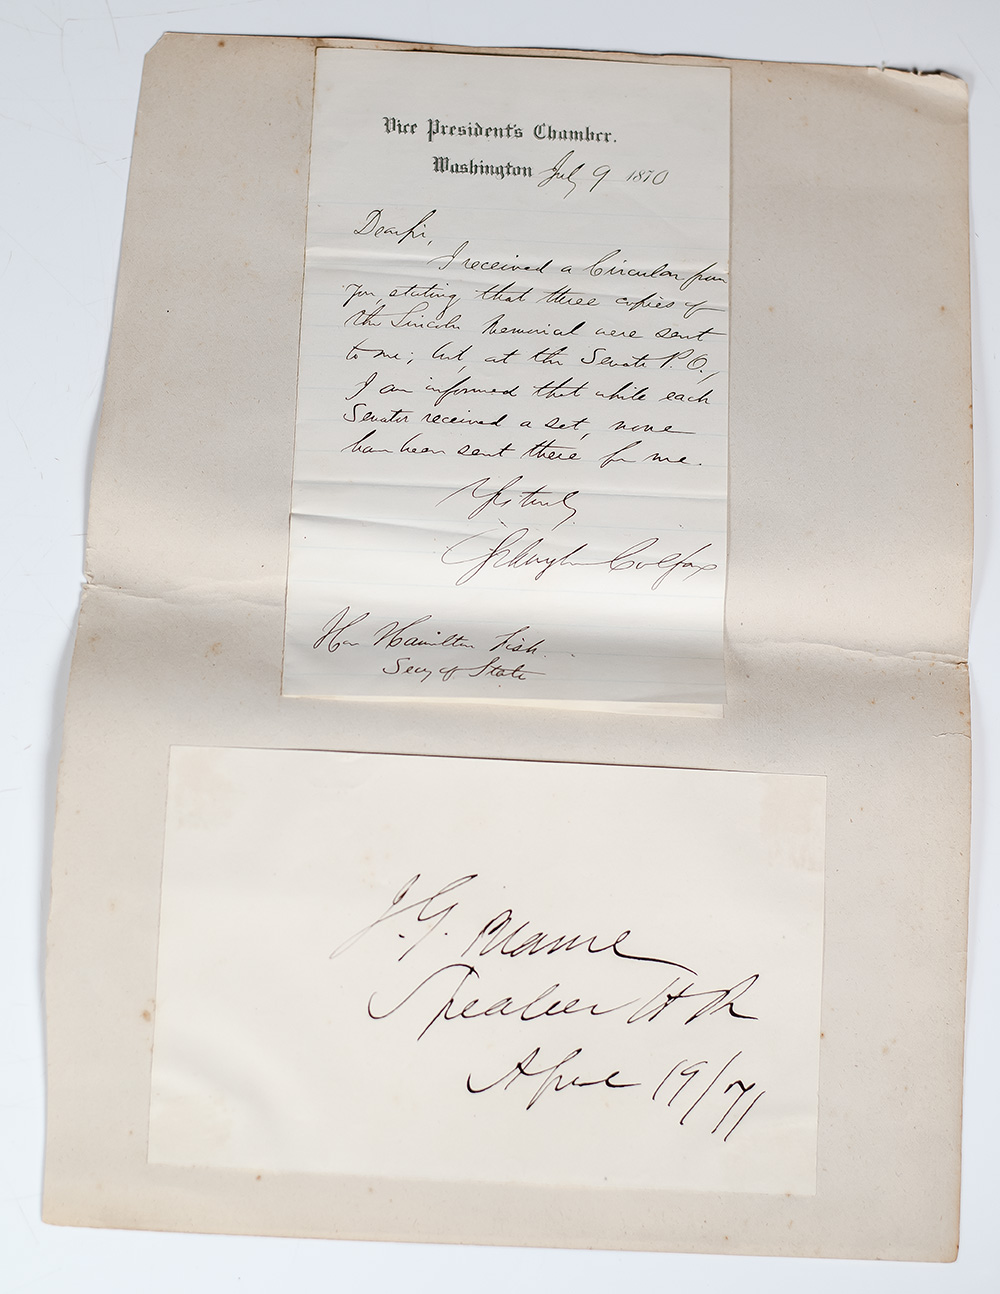 Vice President's Chamber.
Washington July 9 1870
Dear Sir,
I received a Circular from
you, stating that three copies of
the Lincoln Memorial were sent
to me; but, at the Senate P.O.,
I am informed that while each
Senator received a set, none
have been sent there for me.
Yrs truly
Schuyler Colfax
Hon Hamilton Fish
Secy of State
J. G. Blaine
Speaker H R
April 19/71